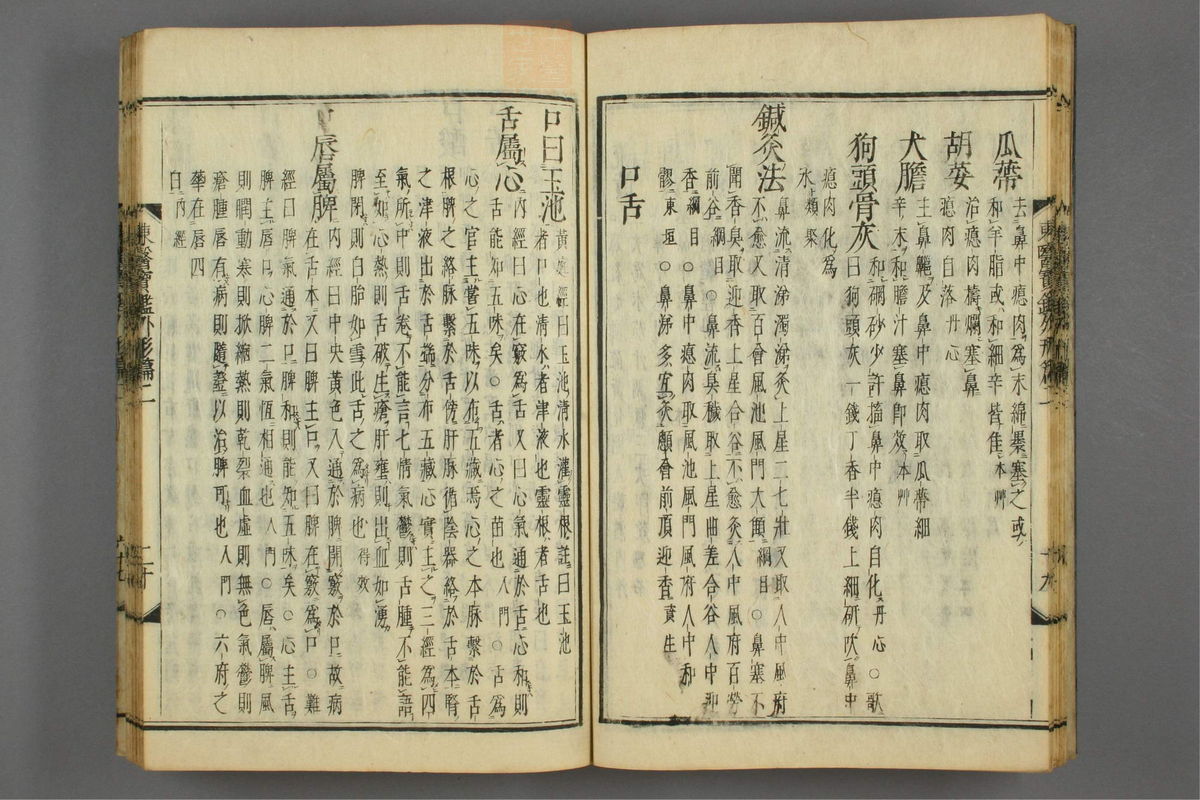 瓜蔕 去鼻中瘜肉爲末綿裹塞之或
和羊脂或和細辛皆佳本艸
胡荽 治瘜肉擣爛塞鼻
瘜肉自落丹心
犬膽 主鼻齆及鼻中瘜肉取瓜蔕細
辛末和膽汁塞鼻卽效本艸
狗頭骨灰 和硇砂少許搐鼻中瘜肉自化丹心○歌
曰狗頭灰一錢丁香半錢上細研吹鼻中
瘜肉化爲
水類聚
鍼灸法 鼻流清涕濁涕灸上星二七壯又取人中風府
不愈又取百會風池風門大顀綱目○鼻塞不
聞香臭取迎香上星合谷不愈灸人中風府百勞
前谷綱目○鼻流臭穢取上星曲差合谷人中迎
香綱目○鼻中瘜肉取風池風門風府人中和
髎東垣○鼻涕多宜灸顖會前頂迎香資生
口舌
口曰玉池 黃庭經曰玉池清水灌靈根註曰玉池
者口也清水者津液也靈根者舌也
舌屬心 內經曰心在竅爲舌又曰心氣通於舌心和則
舌能知五味矣○舌者心之苗也入門○舌爲
心之官主嘗五味以布五藏焉心之本脉繫於舌
根脾之絡脉繫於舌傍肝脉循陰器絡於舌本腎
之津液出於舌端分布五藏心實主之三經爲四
氣所中則舌卷不能言七情氣鬱則舌腫不能語
至如心熱則舌破生瘡肝壅則出血如湧
脾閉則白胎如雪此舌之爲病也得效
口唇屬脾 內經曰中央黃色入通於脾開竅於口故病
在舌本又曰脾主口又曰脾在竅爲口○難
經曰脾氣通於口脾和則能知五味矣○心主舌
脾主唇口心脾二氣恆相通也入門○唇屬脾風
則瞤動寒則掀縮熱則乾裂血虛則無色氣鬱則
瘡腫唇有病則隨證以治脾可也入門○六府之
華在唇四
白內經
東醫寶鑑外形篇二
二十
十九